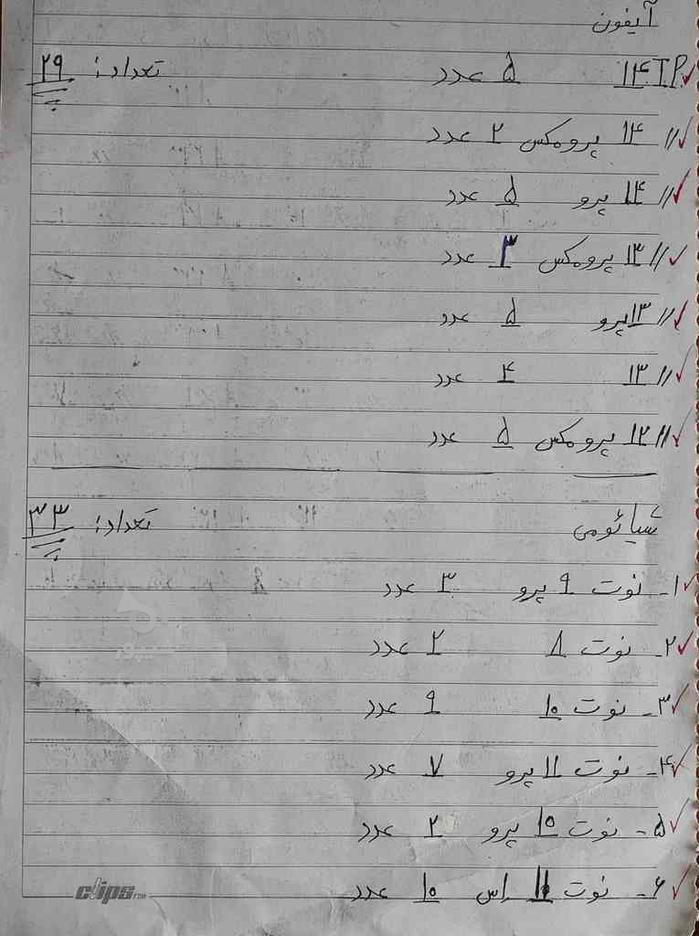 آیفون
۱۴TP ۵ عدد تعداد: ۲۹
// ۱۴ پرومکس ۲ عدد
// ۱۴ پرو ۵ عدد
// ۱۳ پرومکس ۳ عدد
// ۱۳ پرو ۵ عدد
// ۱۳ ۴ عدد
// ۱۲ پرومکس ۵ عدد
شیائومی تعداد: ۳۳
۱- نوت ۹ پرو ۳ عدد
۲- نوت ۸ ۲ عدد
۳- نوت ۱۰ ۹ عدد
۴- نوت ۱۱ پرو ۷ عدد
۵- نوت ۱۰ پرو ۲ عدد
۶- نوت ۱۱ اس ۱۰ عدد
clips